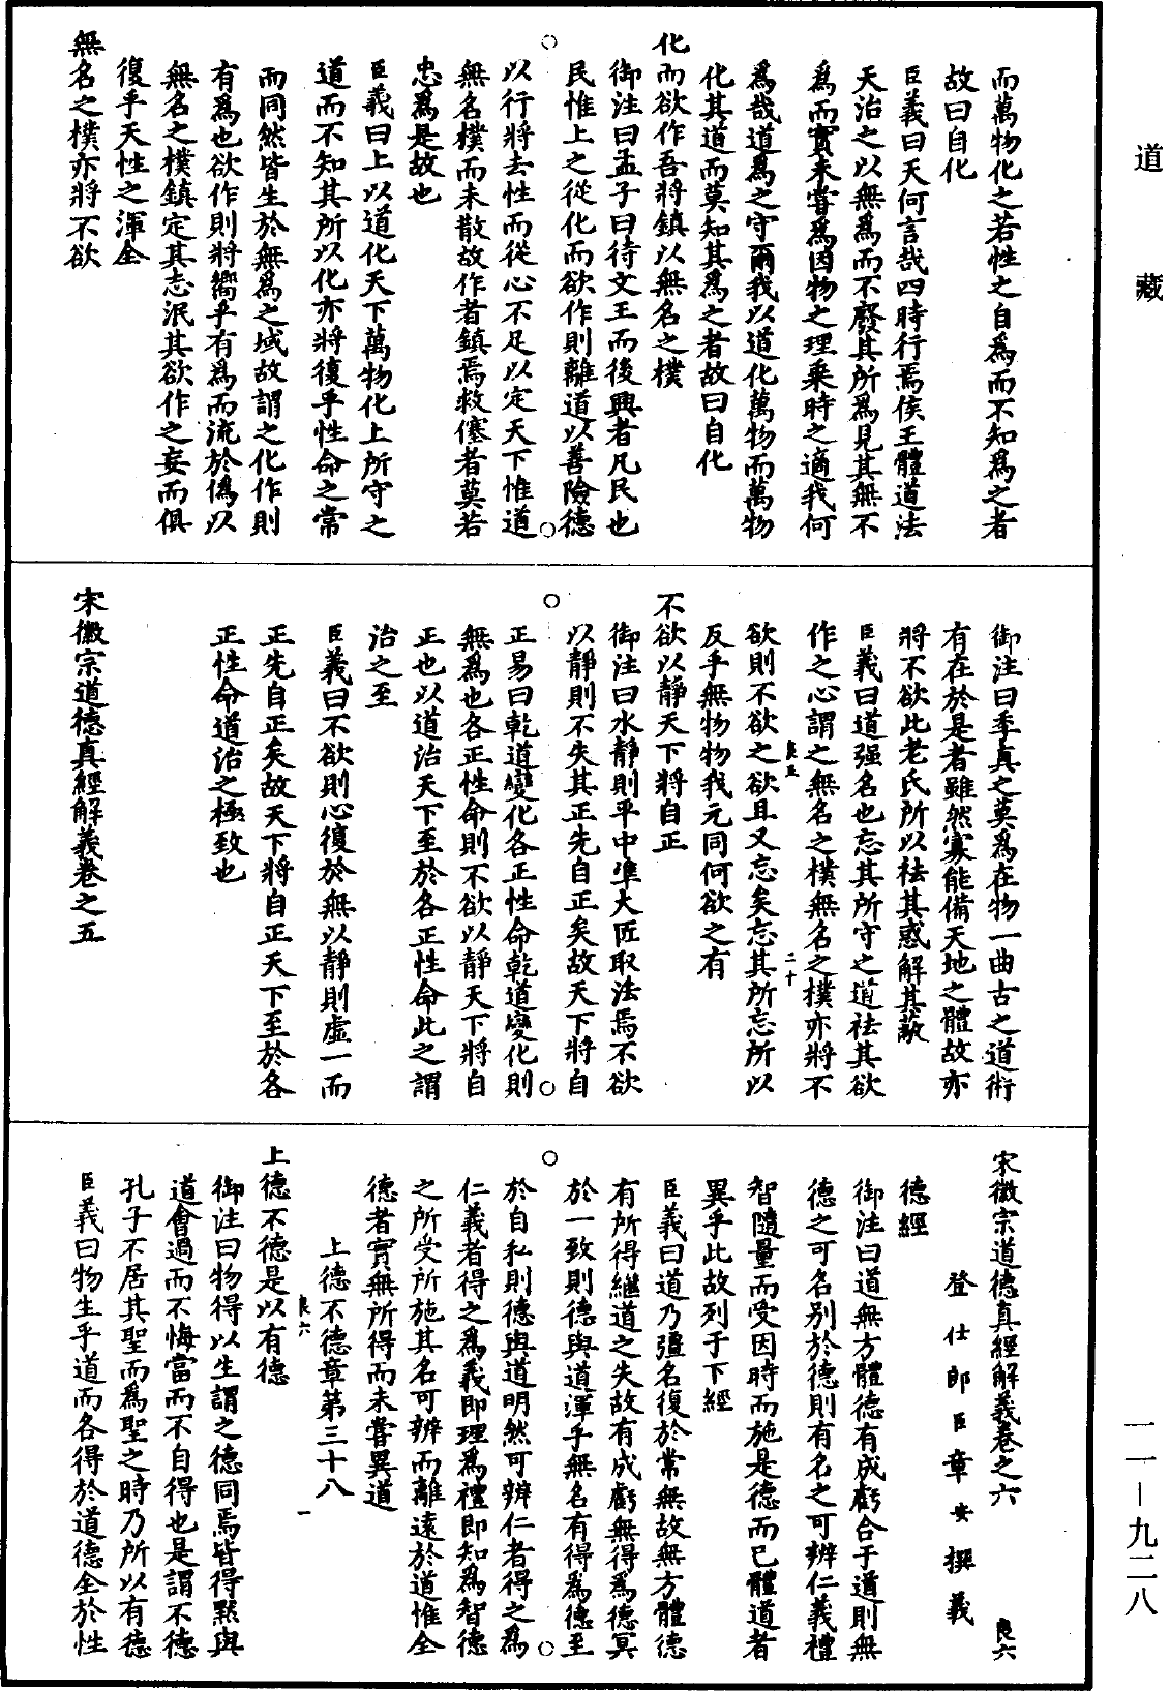 道藏
而萬物化之若性之自為而不知為之者
故曰自化
臣義曰天何言哉四時行焉侯王體道法
天治之以無為而不廢其所為見其無不
為而實未嘗為因物之理乘時之適我何
為哉道為之守爾我以道化萬物而萬物
化其道而莫知其為之者故曰自化
化而欲作吾將鎮以無名之樸
御注曰孟子曰待文王而後興者凡民也
民惟上之從化而欲作則離道以善險德
以行將去性而從心不足以定天下惟道
無名樸而未散故作者鎮焉救僿者莫若
忠為是故也
臣義曰上以道化天下萬物化上所守之
道而不知其所以化亦將復乎性命之常
而同然皆生於無為之域故謂之化作則
有為也欲作則將嚮乎有為而流於偽以
無名之樸鎮定其志泯其欲作之妄而俱
復乎天性之渾全
無名之樸亦將不欲
御注曰季真之莫為在物一曲古之道術
有在於是者雖然寡能備天地之體故亦
將不欲此老氏所以袪其惑解其蔽
臣義曰道强名也忘其所守之道袪其欲
作之心謂之無名之樸無名之樸亦將不
良五 二十
欲則不欲之欲且又忘矣忘其所忘所以
反乎無物物我元同何欲之有
不欲以靜天下將自正
御注曰水靜則平中準大匠取法焉不欲
以靜則不失其正先自正矣故天下將自
正易曰乾道變化各正性命乾道變化則
無為也各正性命則不欲以靜天下將自
正也以道治天下至於各正性命此之謂
治之至
臣義曰不欲則心復於無以靜則虛一而
正先自正矣故天下將自正天下至於各
正性命道治之極致也
宋徽宗道德真經解義卷之五
宋徽宗道德真經解義卷之六 良六
登仕郎臣章安撰義
德經
御注曰道無方體德有成虧合于道則無
德之可名別於德則有名之可辨仁義禮
智隨量而受因時而施是德而已體道者
異乎此故列于下經
臣義曰道乃彊名復於常無故無方體德
有所得繼道之失故有成虧無得為德冥
於一致則德與道渾乎無名有得為德至
於自私則德與道明然可辨仁者得之為
仁義者得之為義即理為禮即知為智德
之所受所施其名可辨而離遠於道惟全
德者實無所得而未嘗異道
上德不德章第三十八
良六 一
上德不德是以有德
御注曰物得以生謂之德同焉皆得默與
道會過而不悔當而不自得也是謂不德
孔子不居其聖而為聖之時乃所以有德
臣義曰物生乎道而各得於道德全於性
一一－九二八